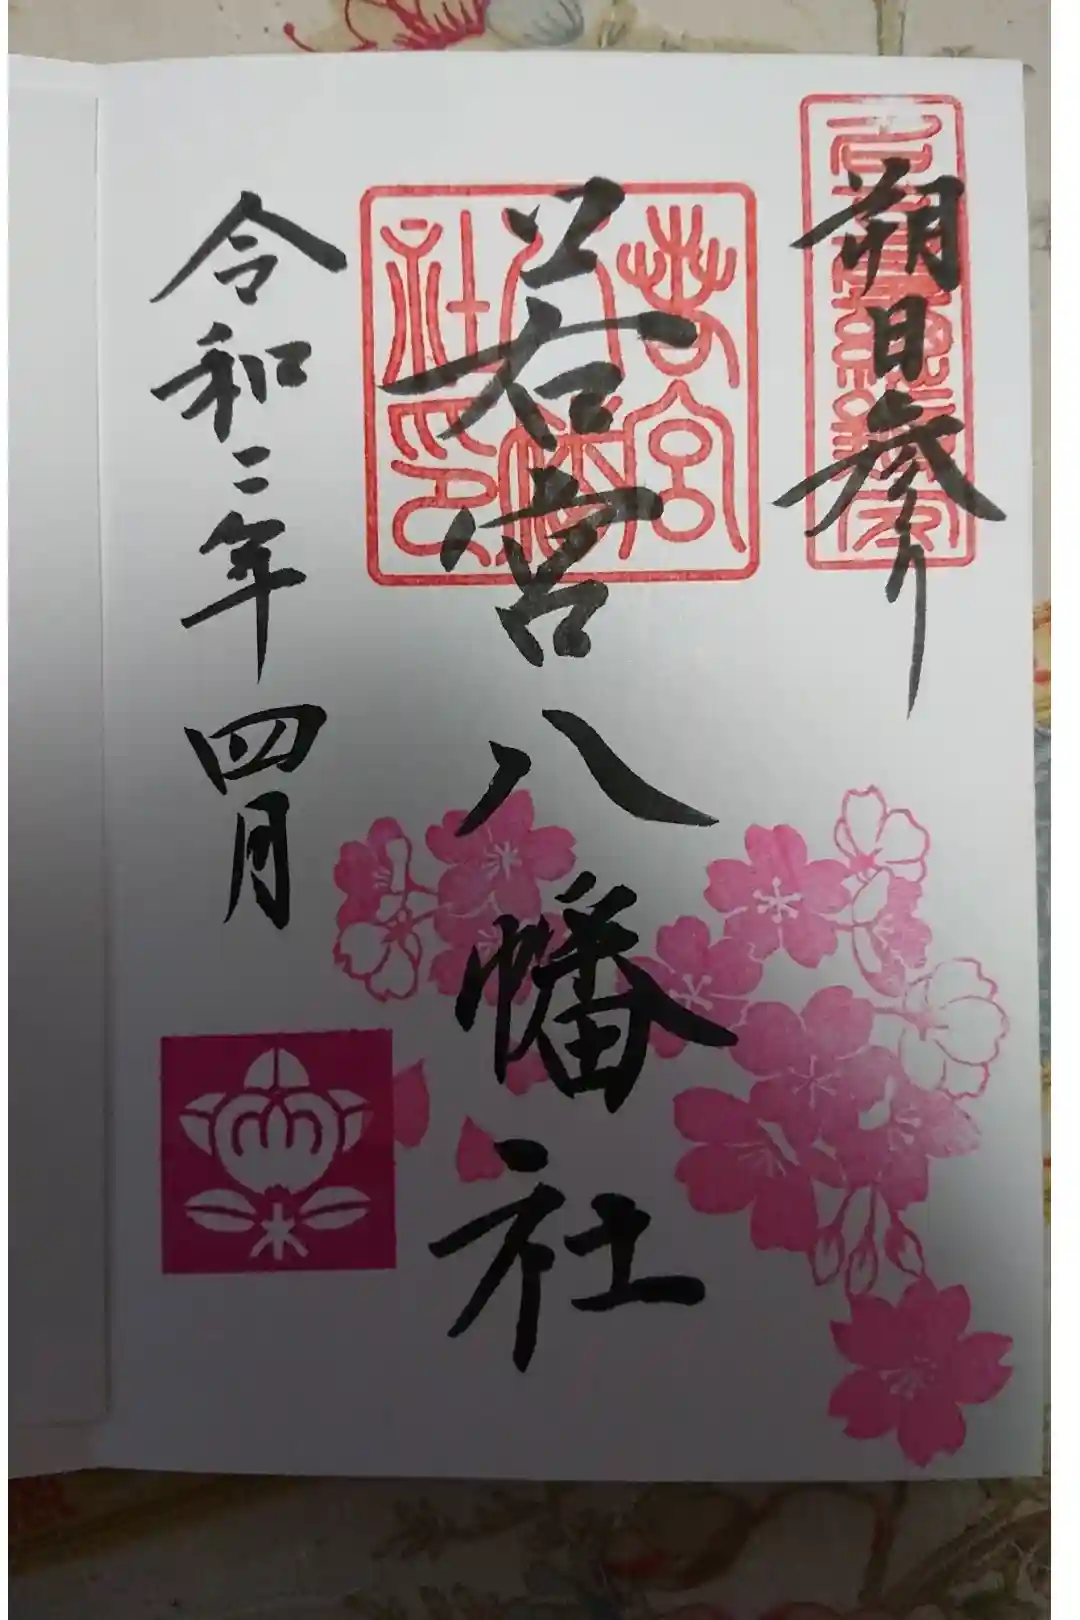 朔日参り
若宮八幡社
若宮八幡社印
令和二年四月